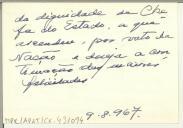 da dignidade de Che
fe do Estado, a que
ascendeu, por voto da
Nação, e deseja a con
tinuação das maiores
felicidades
9-8-967.